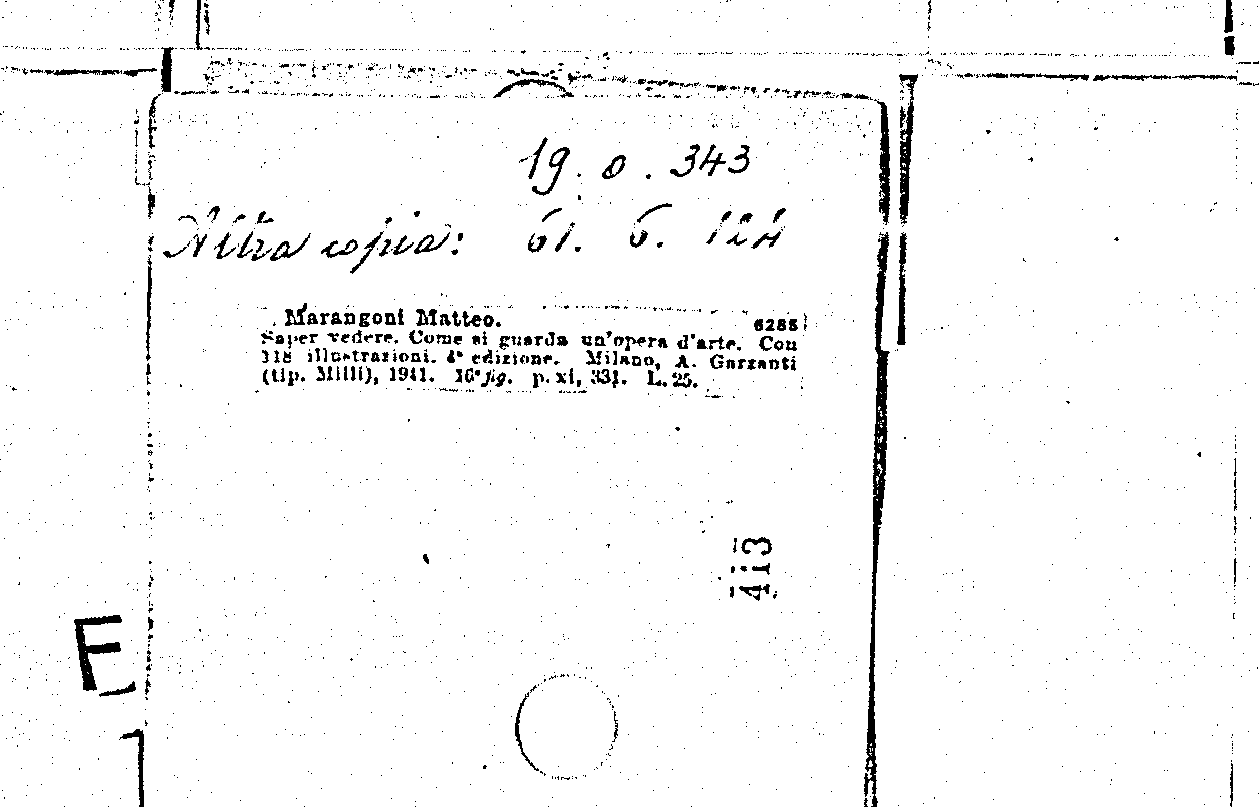 19. o. 343
Altra copia: 61. 6. 124
Marangoni Matteo. 6285
Saper vedere. Come si guarda un'opera d'arte. Con
318 illustrazioni. 4ª edizione. Milano, A. Garzanti
(tip. Milli), 1941. 16° fig. p. xi, 331. L. 25.
413
E